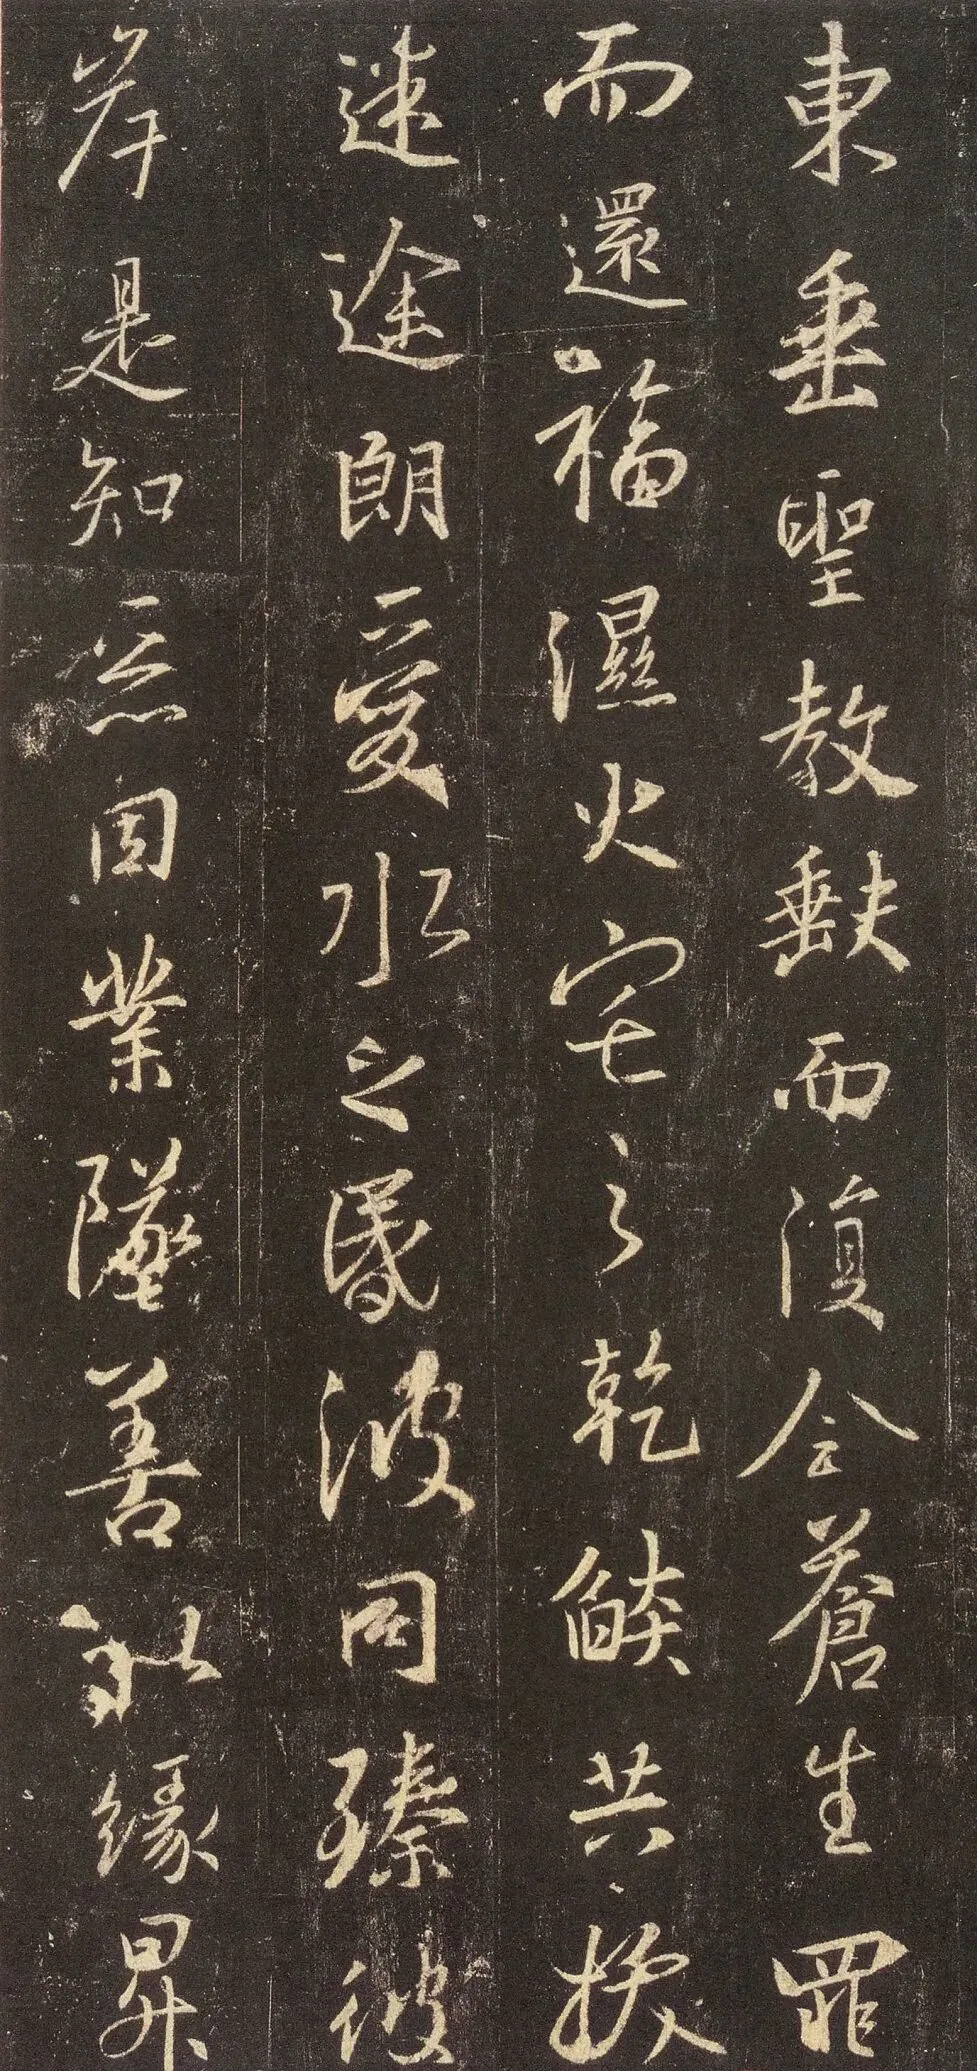 東垂聖教缺而復全蒼生罪
而還福濕火宅之乾燄共拔
迷途朗愛水之昏波同臻彼
岸是知惡因業墜善以緣昇